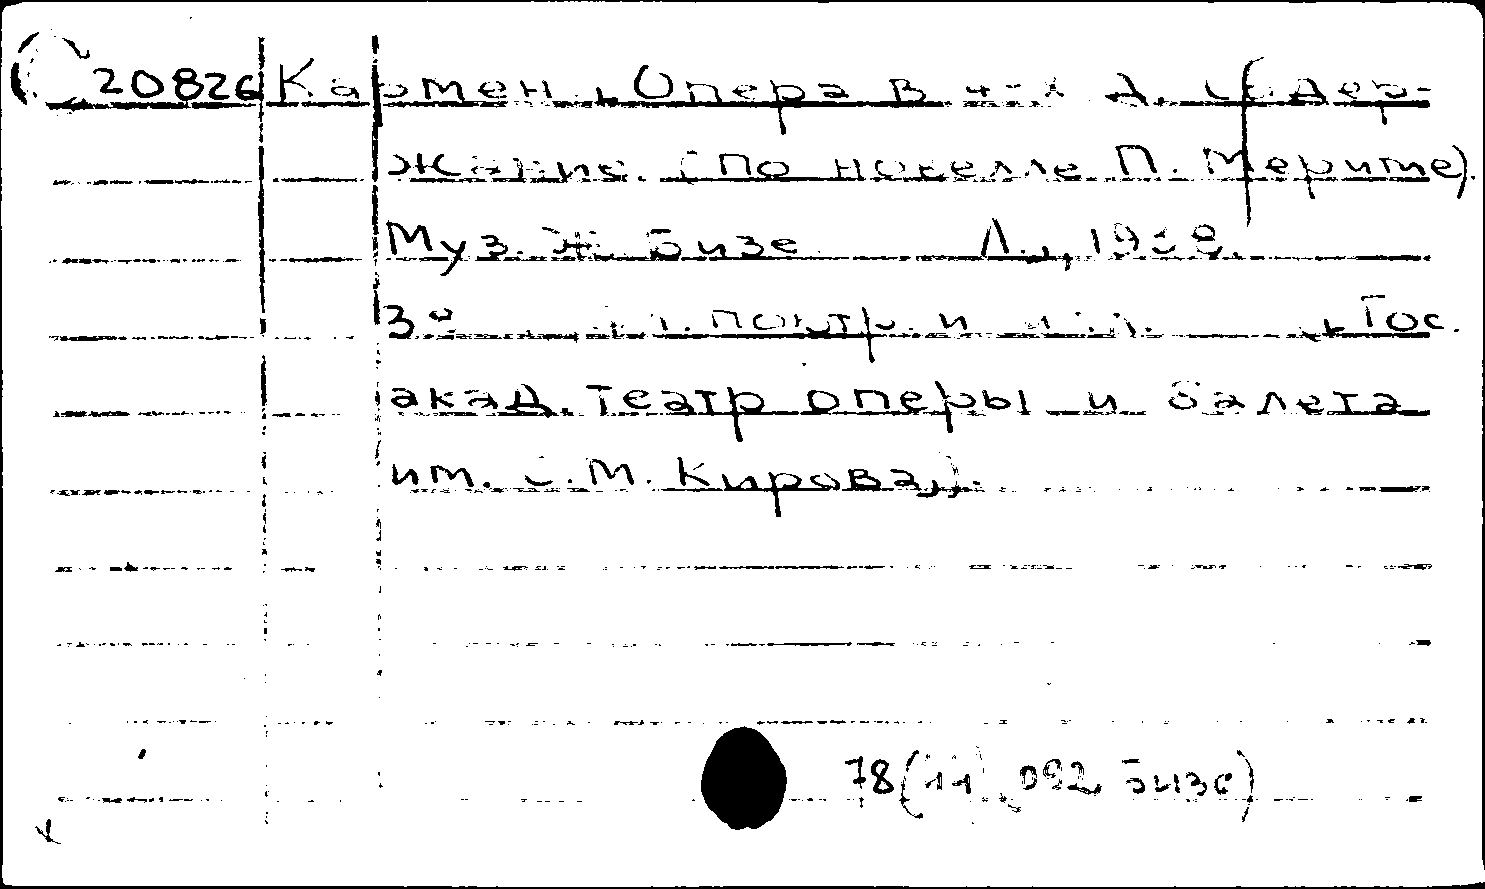 20826 Кармен. Опера в 4-х д. Содер-
жание. (По новелле П. Мериме).
Муз. Ж. Бизе Л., 1938.
портр. и Гос.
акад. театр оперы и балета
им. С. М. Кирова).
78( 092 Бизе)